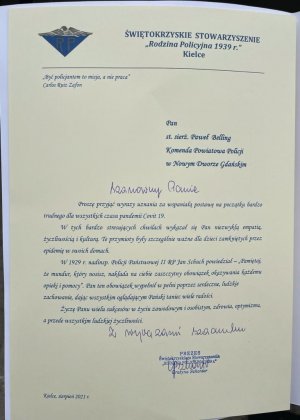 ŚWIĘTOKRZYSKIE STOWARZYSZENIE
„Rodzina Policyjna 1939 r."
Kielce
„Być policjantem to misja, a nie praca"
Carlos Ruiz Zafon
Pan
st. sierż. Paweł Belling
Komenda Powiatowa Policji
w Nowym Dworze Gdańskim
Szanowny Panie
Proszę przyjąć wyrazy uznania za wspaniałą postawę na początku bardzo
trudnego dla wszystkich czasu pandemii Covit 19.
W tych bardzo stresujących chwilach wykazał się Pan niezwykłą empatią,
życzliwością i kulturą. Te przymioty były szczególnie ważne dla dzieci zamkniętych przez
epidemię w swoich domach.
W 1929 r. nadinsp. Policji Państwowej II RP Jan Schuch powiedział – „Pamiętaj,
że mundur, który nosisz, nakłada na ciebie zaszczytny obowiązek okazywania każdemu
opieki i pomocy". Pan ten obowiązek wypełnił w pełni poprzez serdeczne, ludzkie
zachowanie, dając wszystkim oglądającym Pański taniec wiele radości.
Życzę Panu wielu sukcesów w życiu zawodowym i osobistym, zdrowia, optymizmu,
a przede wszystkim ludzkiej życzliwości.
Z wyrazami szacunku
PREZES
Kielce, sierpień 2021 r.